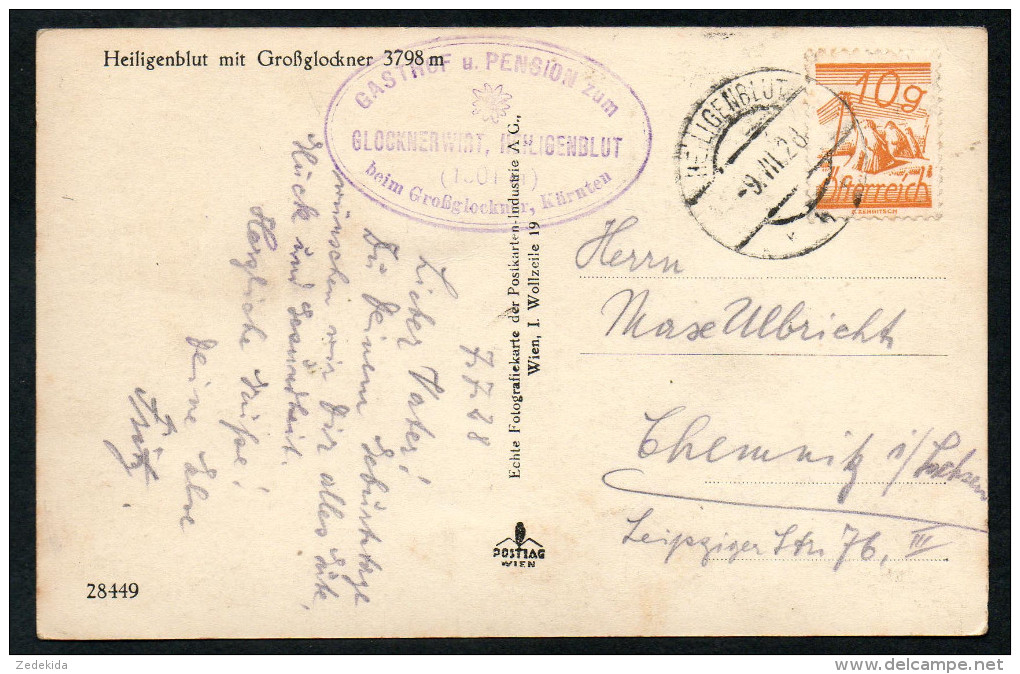 Heiligenblut mit Großglockner 3798 m
GASTHOF u. PENSION zum
GLOCKNERWIRT, HEILIGENBLUT
(1301 m)
beim Großglockner, Kärnten
HEILIGENBLUT
-9.VII.28
10g
Österreich
7.7.28
Lieber Vater!
Zu Deinem Geburtstage
wünschen wir Dir alles Gute,
Glück und Gesundheit.
Herzliche Grüße!
Deine
Fritz
Echte Fotografiekarte der Postkarten-Industrie A.G.,
Wien, I. Wollzeile 19
POSTIAG
WIEN
Herrn
Max Ulbricht
Chemnitz i/Sachsen
Leipziger Str. 76, III
28449
Zedekida
www.delcampe.net